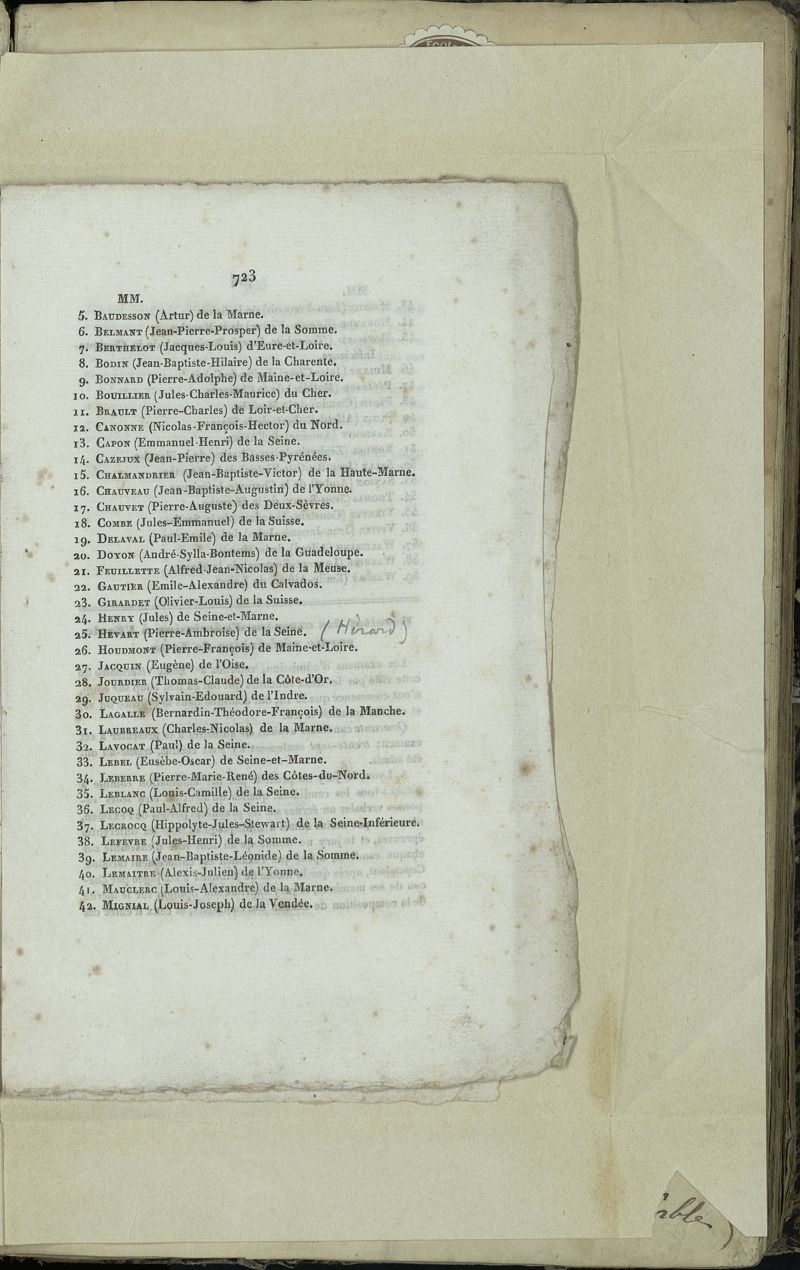 ECOL
723
MM.
5. Baudesson (Artur) de la Marne.
6. Belmant (Jean-Pierre-Prosper) de la Somme.
7. Berthelot (Jacques-Louis) d'Eure-et-Loire.
8. Bodin (Jean-Baptiste-Hilaire) de la Charente.
9. Bonnard (Pierre-Adolphe) de Maine-et-Loire.
10. Bouillier (Jules-Charles-Maurice) du Cher.
11. Brault (Pierre-Charles) de Loir-et-Cher.
12. Canonne (Nicolas-François-Hector) du Nord.
13. Capon (Emmanuel-Henri) de la Seine.
14. Cazejux (Jean-Pierre) des Basses-Pyrénées.
15. Chalmandrier (Jean-Baptiste-Victor) de la Haute-Marne.
16. Chauveau (Jean-Baptiste-Augustin) de l'Yonne.
17. Chauvet (Pierre-Auguste) des Deux-Sèvres.
18. Combe (Jules-Emmanuel) de la Suisse.
19. Delaval (Paul-Emile) de la Marne.
20. Doyon (André-Sylla-Bontems) de la Guadeloupe.
21. Feuillette (Alfred-Jean-Nicolas) de la Meuse.
22. Gautier (Emile-Alexandre) du Calvados.
23. Girardet (Olivier-Louis) de la Suisse.
24. Henry (Jules) de Seine-et-Marne.
25. Hevart (Pierre-Ambroise) de la Seine. (Hérard)
26. Houdmont (Pierre-François) de Maine-et-Loire.
27. Jacquin (Eugène) de l'Oise.
28. Jourdier (Thomas-Claude) de la Côte-d'Or.
29. Juqueau (Sylvain-Edouard) de l'Indre.
30. Lagalle (Bernardin-Théodore-François) de la Manche.
31. Laubreaux (Charles-Nicolas) de la Marne.
32. Lavocat (Paul) de la Seine.
33. Lebel (Eusèbe-Oscar) de Seine-et-Marne.
34. Leberre (Pierre-Marie-René) des Côtes-du-Nord.
35. Leblanc (Louis-Camille) de la Seine.
36. Lecoq (Paul-Alfred) de la Seine.
37. Lecrocq (Hippolyte-Jules-Stewart) de la Seine-Inférieure.
38. Lefevre (Jules-Henri) de la Somme.
39. Lemaire (Jean-Baptiste-Léonide) de la Somme.
40. Lemaitre (Alexis-Julien) de l'Yonne.
41. Mauclerc (Louis-Alexandre) de la Marne.
42. Mignial (Louis-Joseph) de la Vendée.
able)